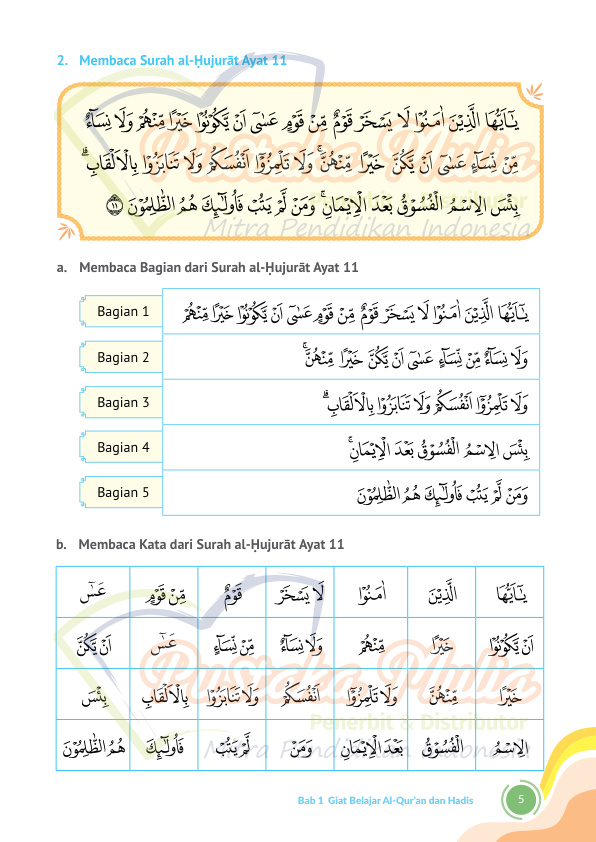 2. Membaca Surah al-Ḥujurāt Ayat 11
يٰٓاَيُّهَا الَّذِيْنَ اٰمَنُوْا لَا يَسْخَرْ قَوْمٌ مِّنْ قَوْمٍ عَسٰٓى اَنْ يَّكُوْنُوْا خَيْرًا مِّنْهُمْ وَلَا نِسَاۤءٌ
مِّنْ نِّسَاۤءٍ عَسٰٓى اَنْ يَّكُنَّ خَيْرًا مِّنْهُنَّۚ وَلَا تَلْمِزُوْٓا اَنْفُسَكُمْ وَلَا تَنَابَزُوْا بِالْاَلْقَابِۗ
بِئْسَ الِاسْمُ الْفُسُوْقُ بَعْدَ الْاِيْمَانِۚ وَمَنْ لَّمْ يَتُبْ فَاُولٰۤىِٕكَ هُمُ الظّٰلِمُوْنَ ١١
Pustaka Mulia
Penerbit & Distributor
Mitra Pendidikan Indonesia
a. Membaca Bagian dari Surah al-Ḥujurāt Ayat 11
Bagian 1 يٰٓاَيُّهَا الَّذِيْنَ اٰمَنُوْا لَا يَسْخَرْ قَوْمٌ مِّنْ قَوْمٍ عَسٰٓى اَنْ يَّكُوْنُوْا خَيْرًا مِّنْهُمْ
Bagian 2 وَلَا نِسَاۤءٌ مِّنْ نِّسَاۤءٍ عَسٰٓى اَنْ يَّكُنَّ خَيْرًا مِّنْهُنَّۚ
Bagian 3 وَلَا تَلْمِزُوْٓا اَنْفُسَكُمْ وَلَا تَنَابَزُوْا بِالْاَلْقَابِۗ
Bagian 4 بِئْسَ الِاسْمُ الْفُسُوْقُ بَعْدَ الْاِيْمَانِۚ
Bagian 5 وَمَنْ لَّمْ يَتُبْ فَاُولٰۤىِٕكَ هُمُ الظّٰلِمُوْنَ
b. Membaca Kata dari Surah al-Ḥujurāt Ayat 11
يٰٓاَيُّهَا الَّذِيْنَ اٰمَنُوْا لَا يَسْخَرْ قَوْمٌ مِّنْ قَوْمٍ عَسٰٓ
اَنْ يَّكُوْنُوْا خَيْرًا مِّنْهُمْ وَلَا نِسَاۤءٌ مِّنْ نِّسَاۤءٍ عَسٰٓ اَنْ يَّكُنَّ
خَيْرًا مِّنْهُنَّ وَلَا تَلْمِزُوْٓا اَنْفُسَكُمْ وَلَا تَنَابَزُوْا بِالْاَلْقَابِ بِئْسَ
الِاسْمُ الْفُسُوْقُ بَعْدَ الْاِيْمَانِ وَمَنْ لَّمْ يَتُبْ فَاُولٰۤىِٕكَ هُمُ الظّٰلِمُوْنَ
Pustaka Mulia
Penerbit & Distributor
Mitra Pendidikan Indonesia
Bab 1 Giat Belajar Al-Qur'an dan Hadis 5